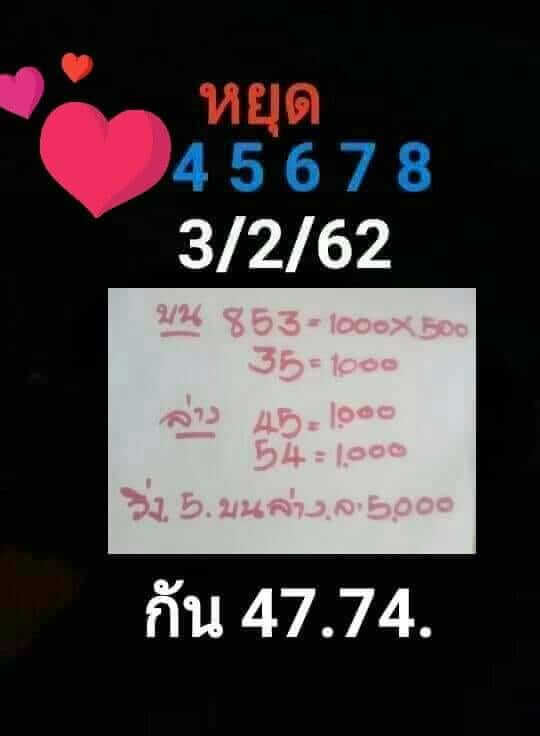 หยุด
4 5 6 7 8
3/2/62
บน 853 = 1000×500
35 = 1,000
ล่าง 45 = 1,000
54 = 1,000
วิ่ง. 5. บนล่าง. ล. 5,000
กัน 47.74.